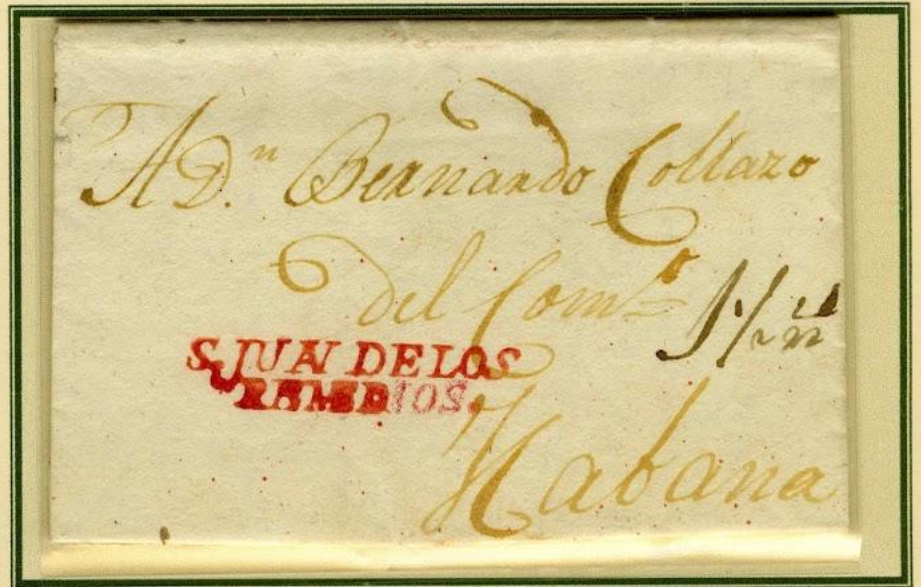 A D.ⁿ Bernando Collazo
del Com.º
1½
S. JUAN DE LOS
REMEDIOS.
Habana